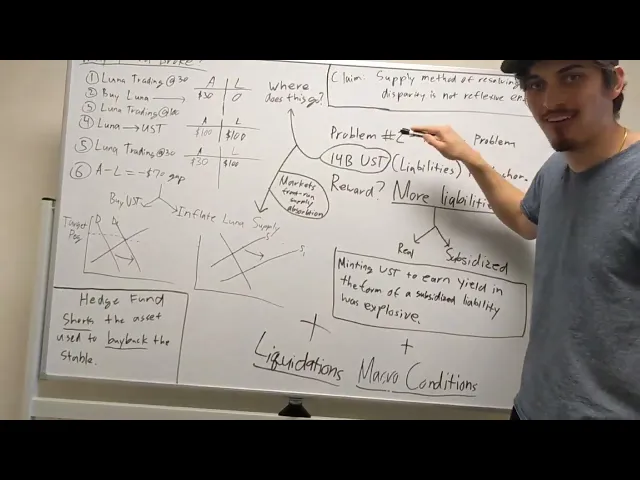 ① Luna Trading @ 30
② Buy Luna
③ Luna Trading @ 100
④ Luna → UST
⑤ Luna Trading @ 30
⑥ A - L = -$70 gap
A L
$30 0
A L
$100 $100
A L
$30 $100
Buy UST
Inflate Luna Supply
Target
Peg
D
S
S₁
Hedge Fund
Shorts the asset
used to buyback the
stable.
Where
does this go?
Markets
front-run
supply
absorption
Claim: Supply method of resolving
disparity is not reflexive
Problem #2
Problem
14B UST (Liabilities)
Reward? More liabilities
Real Subsidized
Minting UST to earn yield in
the form of a subsidized liability
was explosive.
+
Liquidations
+
Macro Conditions